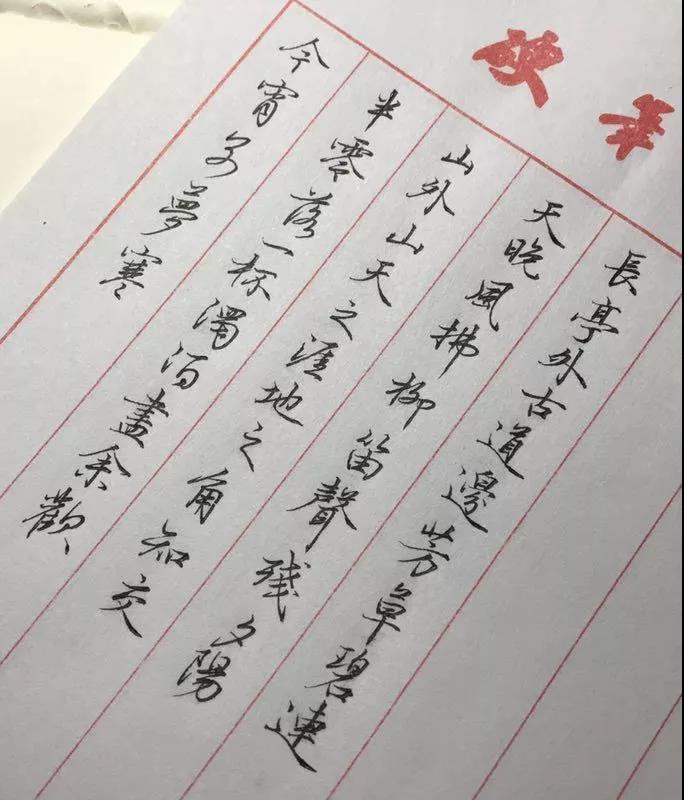 長亭外古道邊芳草碧連
天晚風拂柳笛聲殘夕陽
山外山天之涯地之角知交
半零落一杯濁酒盡余歡
今宵別夢寒